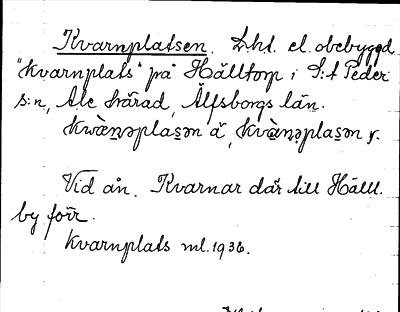 Kvarnplatsen. Lht. el. obebyggd
"kvarnplats" på Hälltorp i S:t Peder
s:n, Ale härad, Älfsborgs län.
kwàṇəplas̱ən ä, kvàṇəplas̱ən y.
Vid ån. Kvarnar där till Hälll.
by förr.
Kvarnplats ml. 1936.